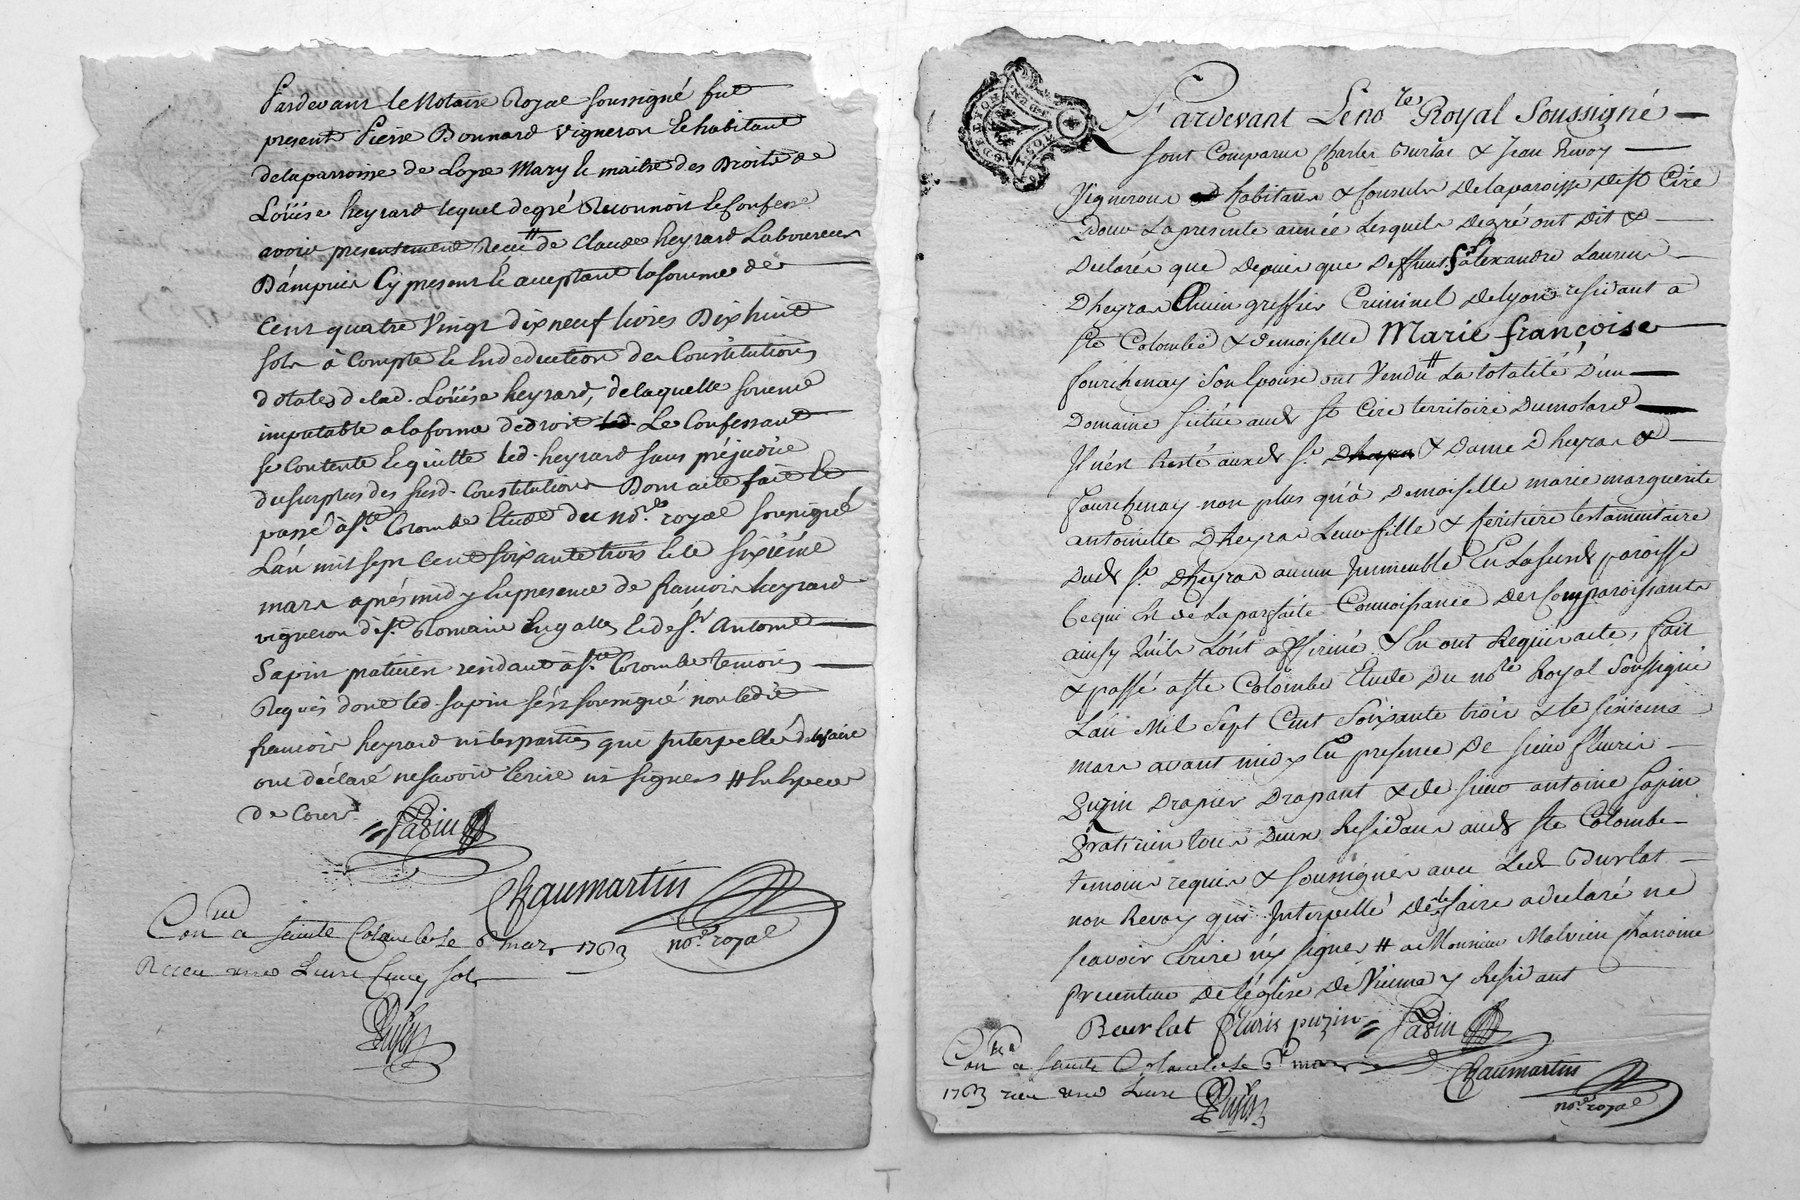 Pardevant le Notaire Royal soussigné fut
present Pierre Bonnard vigneron & habitant
delaparroisse de Loyre Mary & maitre des Droits de
Loüise heyrard lequel degré Reconnoit & confesse
avoir presentement Receu # de Claude heyrard Laboureur
Dampuis Cy present & aceptant lasomme de
Cent quatre Vingt dixneuf livres Dixhuit
sols à Compte & Endeduction des Constitutions
dotales delad. Loüise heyrard, delaquelle somme
imputable alaforme dedroit Le Confessant
se Contente & quitte led. heyrard sans préjudice
dusurplus des susd. Constitutions Dont acte fait &
passé à Ste Colombe Etude du no.re royal soussigné
L'an mil sept cent soixante trois & le sixième
mars après midy En presence de françois heyrard
vigneron de St. Romain En galles & de Sr. Antoine
Sapin praticien residant à Ste Colombe temoins
Requis dont led. sapin s'est soussigné non ledit
françois heyrard ni les parties qui Interpellé de le faire
ont déclaré ne savoir Ecrire ni signer # En Espece
de Cours
Sapin
Chaumartin
no.re royal
Con.lé a Sainte Colombe le 6 mars 1763
Receu une Livre Cinq sols
GENER DE LYON
Pardevant Le no.re Royal Soussigné
sont Comparus Charles Burlat & Jean Revoy
Vignerons habitans & Consuls Delaparoisse de St Cire
Pour La presente année Lesquels Degré ont Dit &
Declarés que Depuis que Deffunt Sr alexandre Laurens
Dheyras Ancien greffier Criminel de Lyon residant a
Ste Colombe & Demoiselle Marie françoise
fourchenay son Epouse ont Vendu # La totalité D'un
Domaine Scitué aud. St Cire territoire Dumolard
Il n'est Resté auxd. Sr. & Dame Dheyras &
fourchenay non plus qu'à Demoiselle marie marguerite
antoinette Dheyras Leur fille & heritiere testamentaire
Dud. Sr. Dheyras aucun Immeuble En Lasusd. paroisse
Ce qui Est de La parfaite Connoissance Des Comparoissants
ainsy Qu'ils L'ont affirmé & En ont Requis acte, fait
& passé a Ste Colombe Etude Du no.re Royal Soussigné
L'an Mil Sept Cent Soixante trois & le sixieme
mars avant midy En presence De sieur fleuris
Puzin Drapier Drapant & de sieur antoine Sapin
Praticien tous Deux Residans aud. Ste Colombe
temoins requis & soussignés avec Led. Burlat
non Revoy qui Interpellé De le faire a declaré ne
scavoir Ecrire ny signer # a Monsieur Malvien Chanoine
Precenteur De l'église De Vienne y Residant
Beurlat fleuris puzin Sapin
Chaumartin
no.re royal
Con.lé a Sainte Colombe le 6 mars
1763 receu une Livre